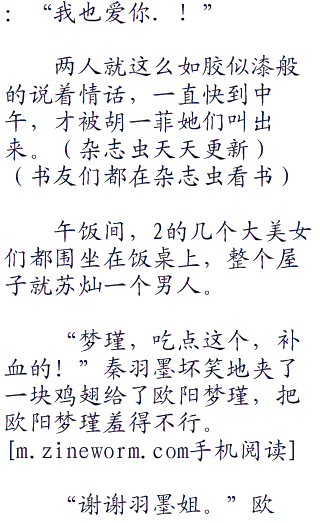 ：“我也爱你．！”
两人就这么如胶似漆般
的说着情话，一直快到中
午，才被胡一菲她们叫出
来。（杂志虫天天更新）
（书友们都在杂志虫看书）
午饭间，2的几个大美女
们都围坐在饭桌上，整个屋
子就苏灿一个男人。
“梦瑾，吃点这个，补
血的！”秦羽墨坏笑地夹了
一块鸡翅给了欧阳梦瑾，把
欧阳梦瑾羞得不行。
[m.zineworm.com手机阅读]
“谢谢羽墨姐。”欧